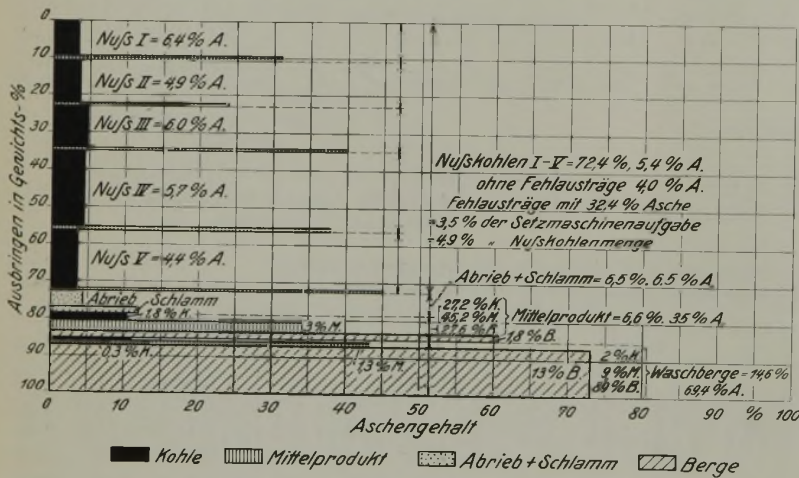 Ausbringen in Gewichts-%
0
10
20
30
40
50
60
70
80
90
100
Nuſs I = 6,4 % A.
Nuſs II = 4,9 % A.
Nuſs III = 6,0 % A.
Nuſs IV = 5,7 % A.
Nuſs V = 4,4 % A.
Nuſskohlen I-V = 72,4 %, 5,4 % A.
ohne Fehlausträge 4,0 % A.
Fehlausträge mit 32,4 % Asche
= 3,5 % der Setzmaschinenaufgabe
= 4,9 % " Nuſskohlenmenge
Abrieb + Schlamm = 6,5 %. 6,5 % A.
Abrieb Schlamm
1,8 % K.
3 % M.
1,8 % B.
27,2 % K.
45,2 % M.
27,6 % B.
Mittelprodukt = 6,6 %. 35 % A.
0,3 % K.
1,3 % M.
13 % B.
2 % K.
9 % M.
89 % B.
Waschberge = 14,6 %
69,4 % A.
0 10 20 30 40 50 60 70 80 90 % 100
Aschengehalt
Kohle Mittelprodukt Abrieb + Schlamm Berge